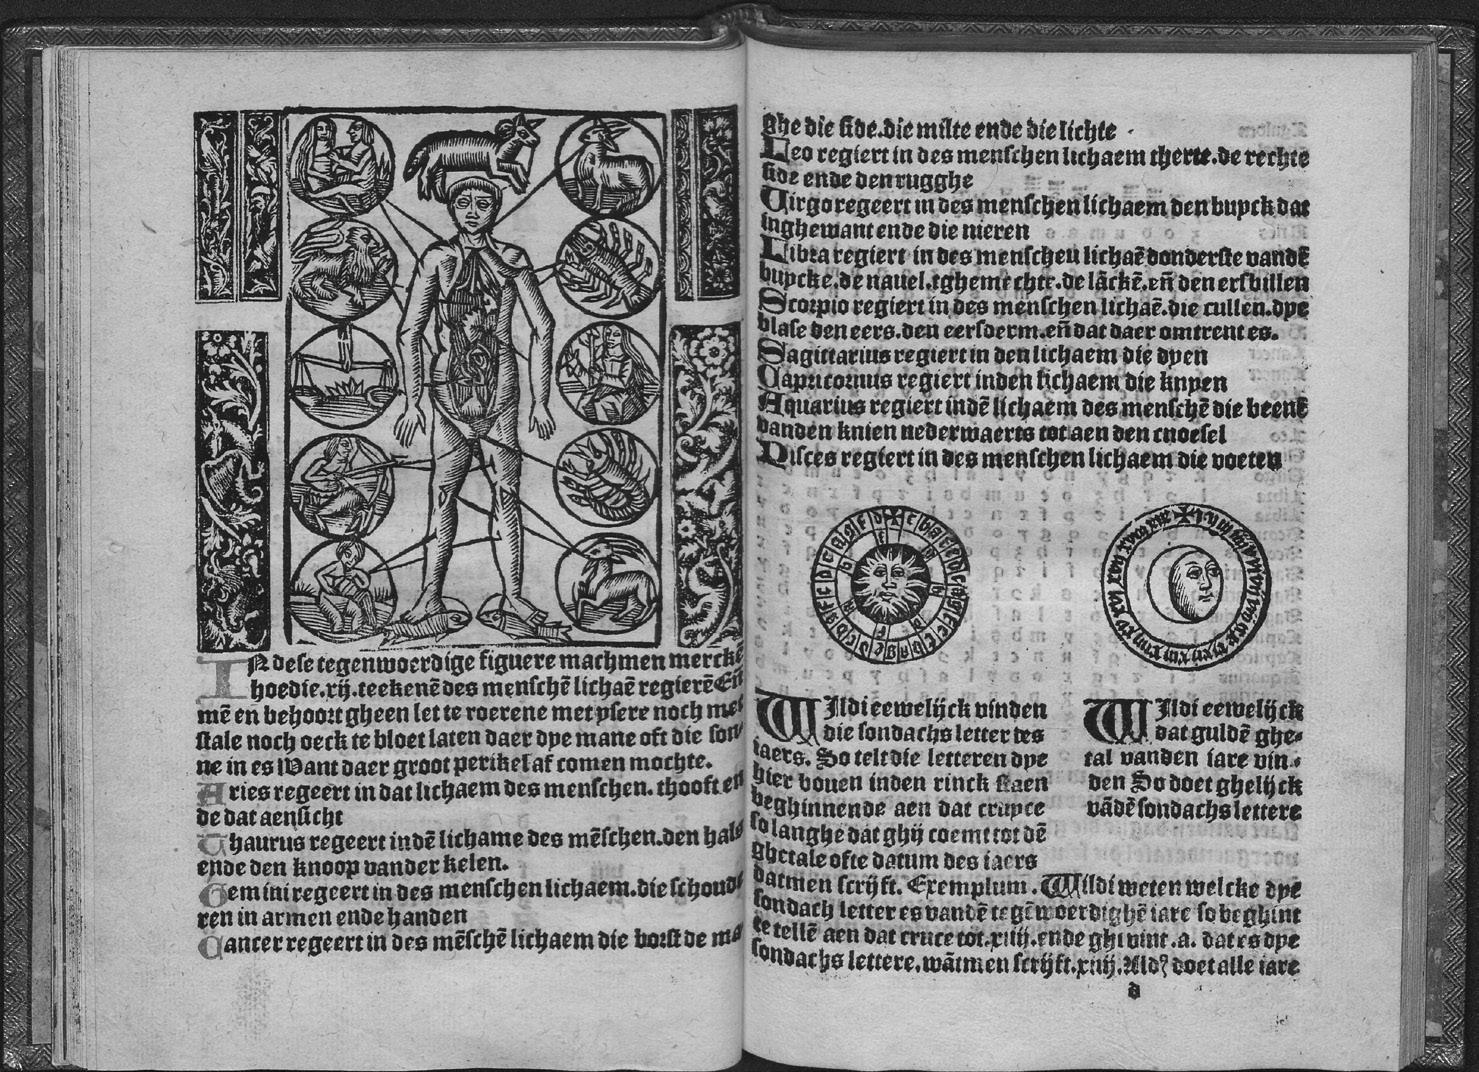 In dese tegenwoerdige figuere machmen merckē
hoe die .xij. teekenē des menschē lichaē regierē Eñ
mē en behoort gheen let te roerene met ysere noch met
stale noch oeck te bloet laten daer dye mane oft die son
ne in es Want daer groot perikel af comen mochte.
Aries regeert in dat lichaem des menschen. thooft en
de dat aensicht
Thaurus regeert indē lichame des mēschen.den hals
ende den knoop vander kelen.
Gemini regeert in des menschen lichaem.die schoude
ren in armen ende handen
Cancer regeert in des mēschē lichaem die borst de ma
ghe die side.die milte ende die lichte
Leo regiert in des menschen lichaem therte.de rechte
side ende den rugghe
Uirgo regeert in des menschen lichaem den buyck dat
inghewant ende die nieren
Libra regiert in des menschen lichaē donderste vandē
buycke.de navel.tghemechte.de lāckē.eñ den ersbillen
Scorpio regiert in des menschen lichaē.die cullen.dye
blase den eers.den eersderm.eñ dat daer omtrent es.
Sagittarius regiert in den lichaem die dyen
Capricornus regiert inden lichaem die knyen
Aquarius regiert indē lichaem des menschē die beenē
vanden knien nederwaerts tot aen den cnoesel
Pisces regiert in des menschen lichaem die voeten
WIldi eewelijck vinden
die sondachs letter des
iaers. So telt die letteren dye
hier bouen inden rinck staen
beghinnende aen dat cruyce
so langhe dat ghij coemt tot dē
ghetale ofte datum des iaers
WIldi eewelijck
dat guldē ghe-
tal vanden iare vin-
den So doet ghelijck
vādē sondachs lettere
datmen scrijft. Exemplum. Wildi weten welcke dye
sondach letter es vandē tegēwoerdighē iare so beghint
te tellē aen dat cruce tot.xiiij.ende ghi vint .a. dat es dye
sondachs lettere.wātmen scrijft.xiiij. Aldꝰ doet alle iare
d